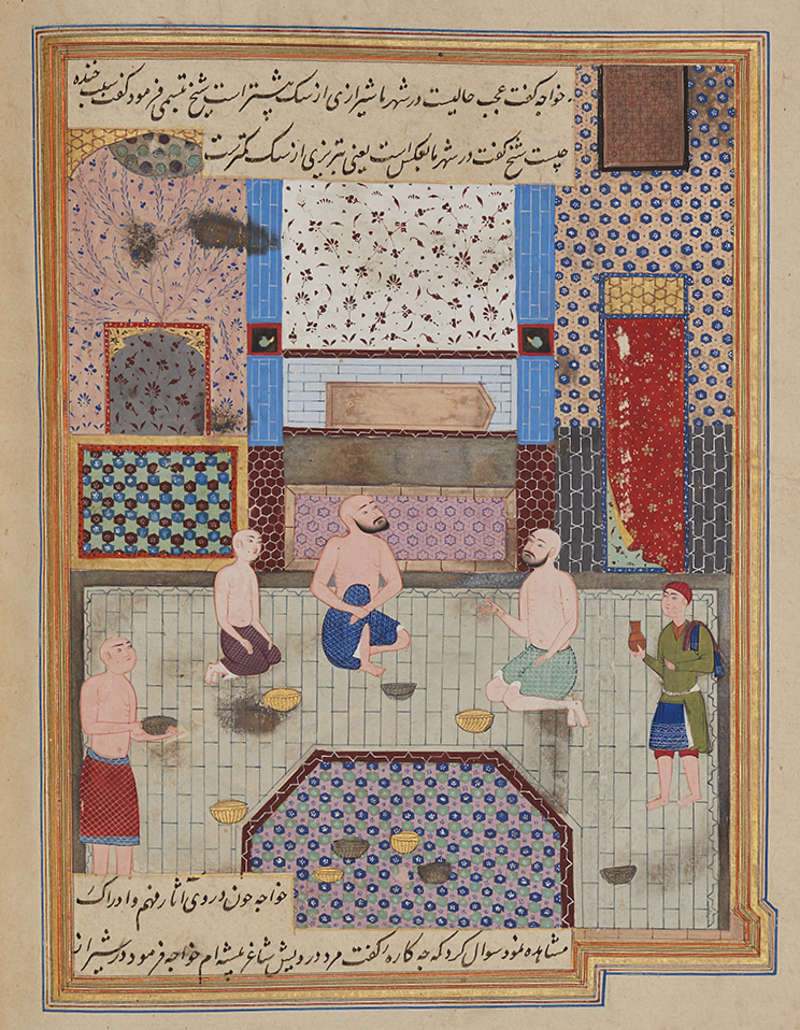 خواجه گفت عجب حالیست در شهر ما شیرازی از سک بیشتر است شیخ تبسمی فرمود گفت سبب خنده
چیست شیخ گفت در شهر ما بالعکس است یعنی تبریزی از سک کمتر است
خواجه چون در وی آثار فهم و ادراک
مشاهده نمود سوال کرد که چه کاره ٔ گفت مرد درویش شاعر پیشه ام خواجه فرمود در شیراز